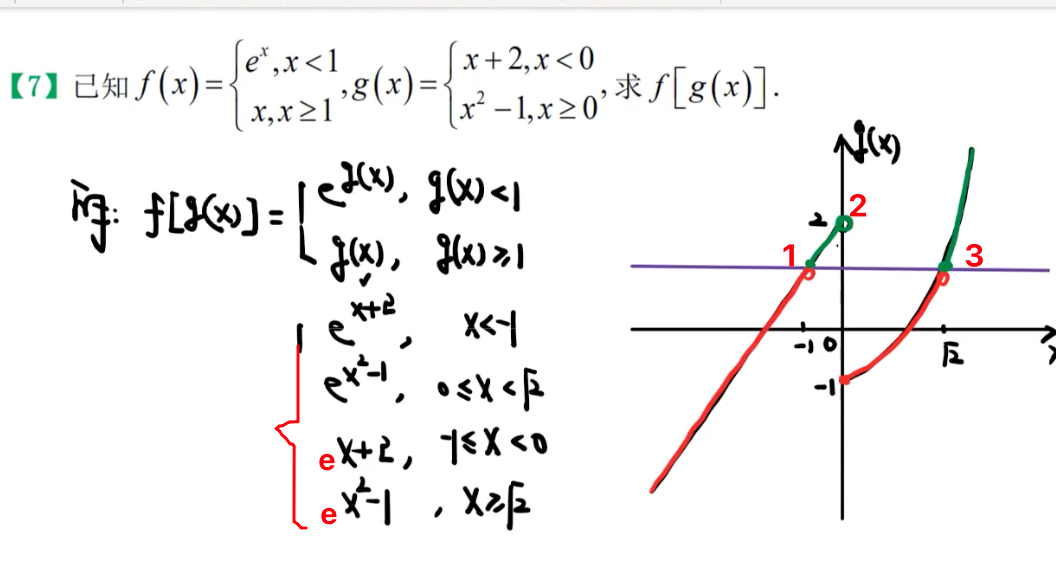 【7】已知 f(x)={e^x, x<1; x, x≥1, g(x)={x+2, x<0; x²-1, x≥0, 求 f[g(x)].
解: f[g(x)]={e^{g(x)}, g(x)<1
g(x), g(x)≥1
e^{x+2}, x<-1
e^{x²-1}, 0≤x<√2
e x+2, -1≤x<0
e x²-1, x≥√2
g(x)
2 2
1 3
-1 0 √2 x
-1